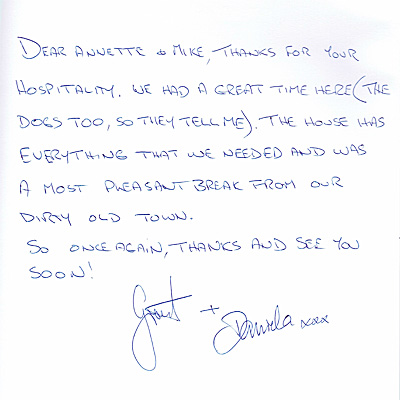 DEAR ANNETTE & MIKE, THANKS FOR YOUR
HOSPITALITY. WE HAD A GREAT TIME HERE (THE
DOGS TOO, SO THEY TELL ME). THE HOUSE HAS
EVERYTHING THAT WE NEEDED AND WAS
A MOST PLEASANT BREAK FROM OUR
DIRTY OLD TOWN.
SO ONCE AGAIN, THANKS AND SEE YOU
SOON!
Grant + Daniela xxx